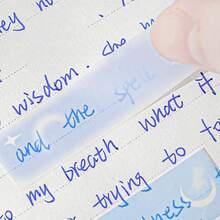 wisdom. She
and the spell
my breath what it
trying to
ness